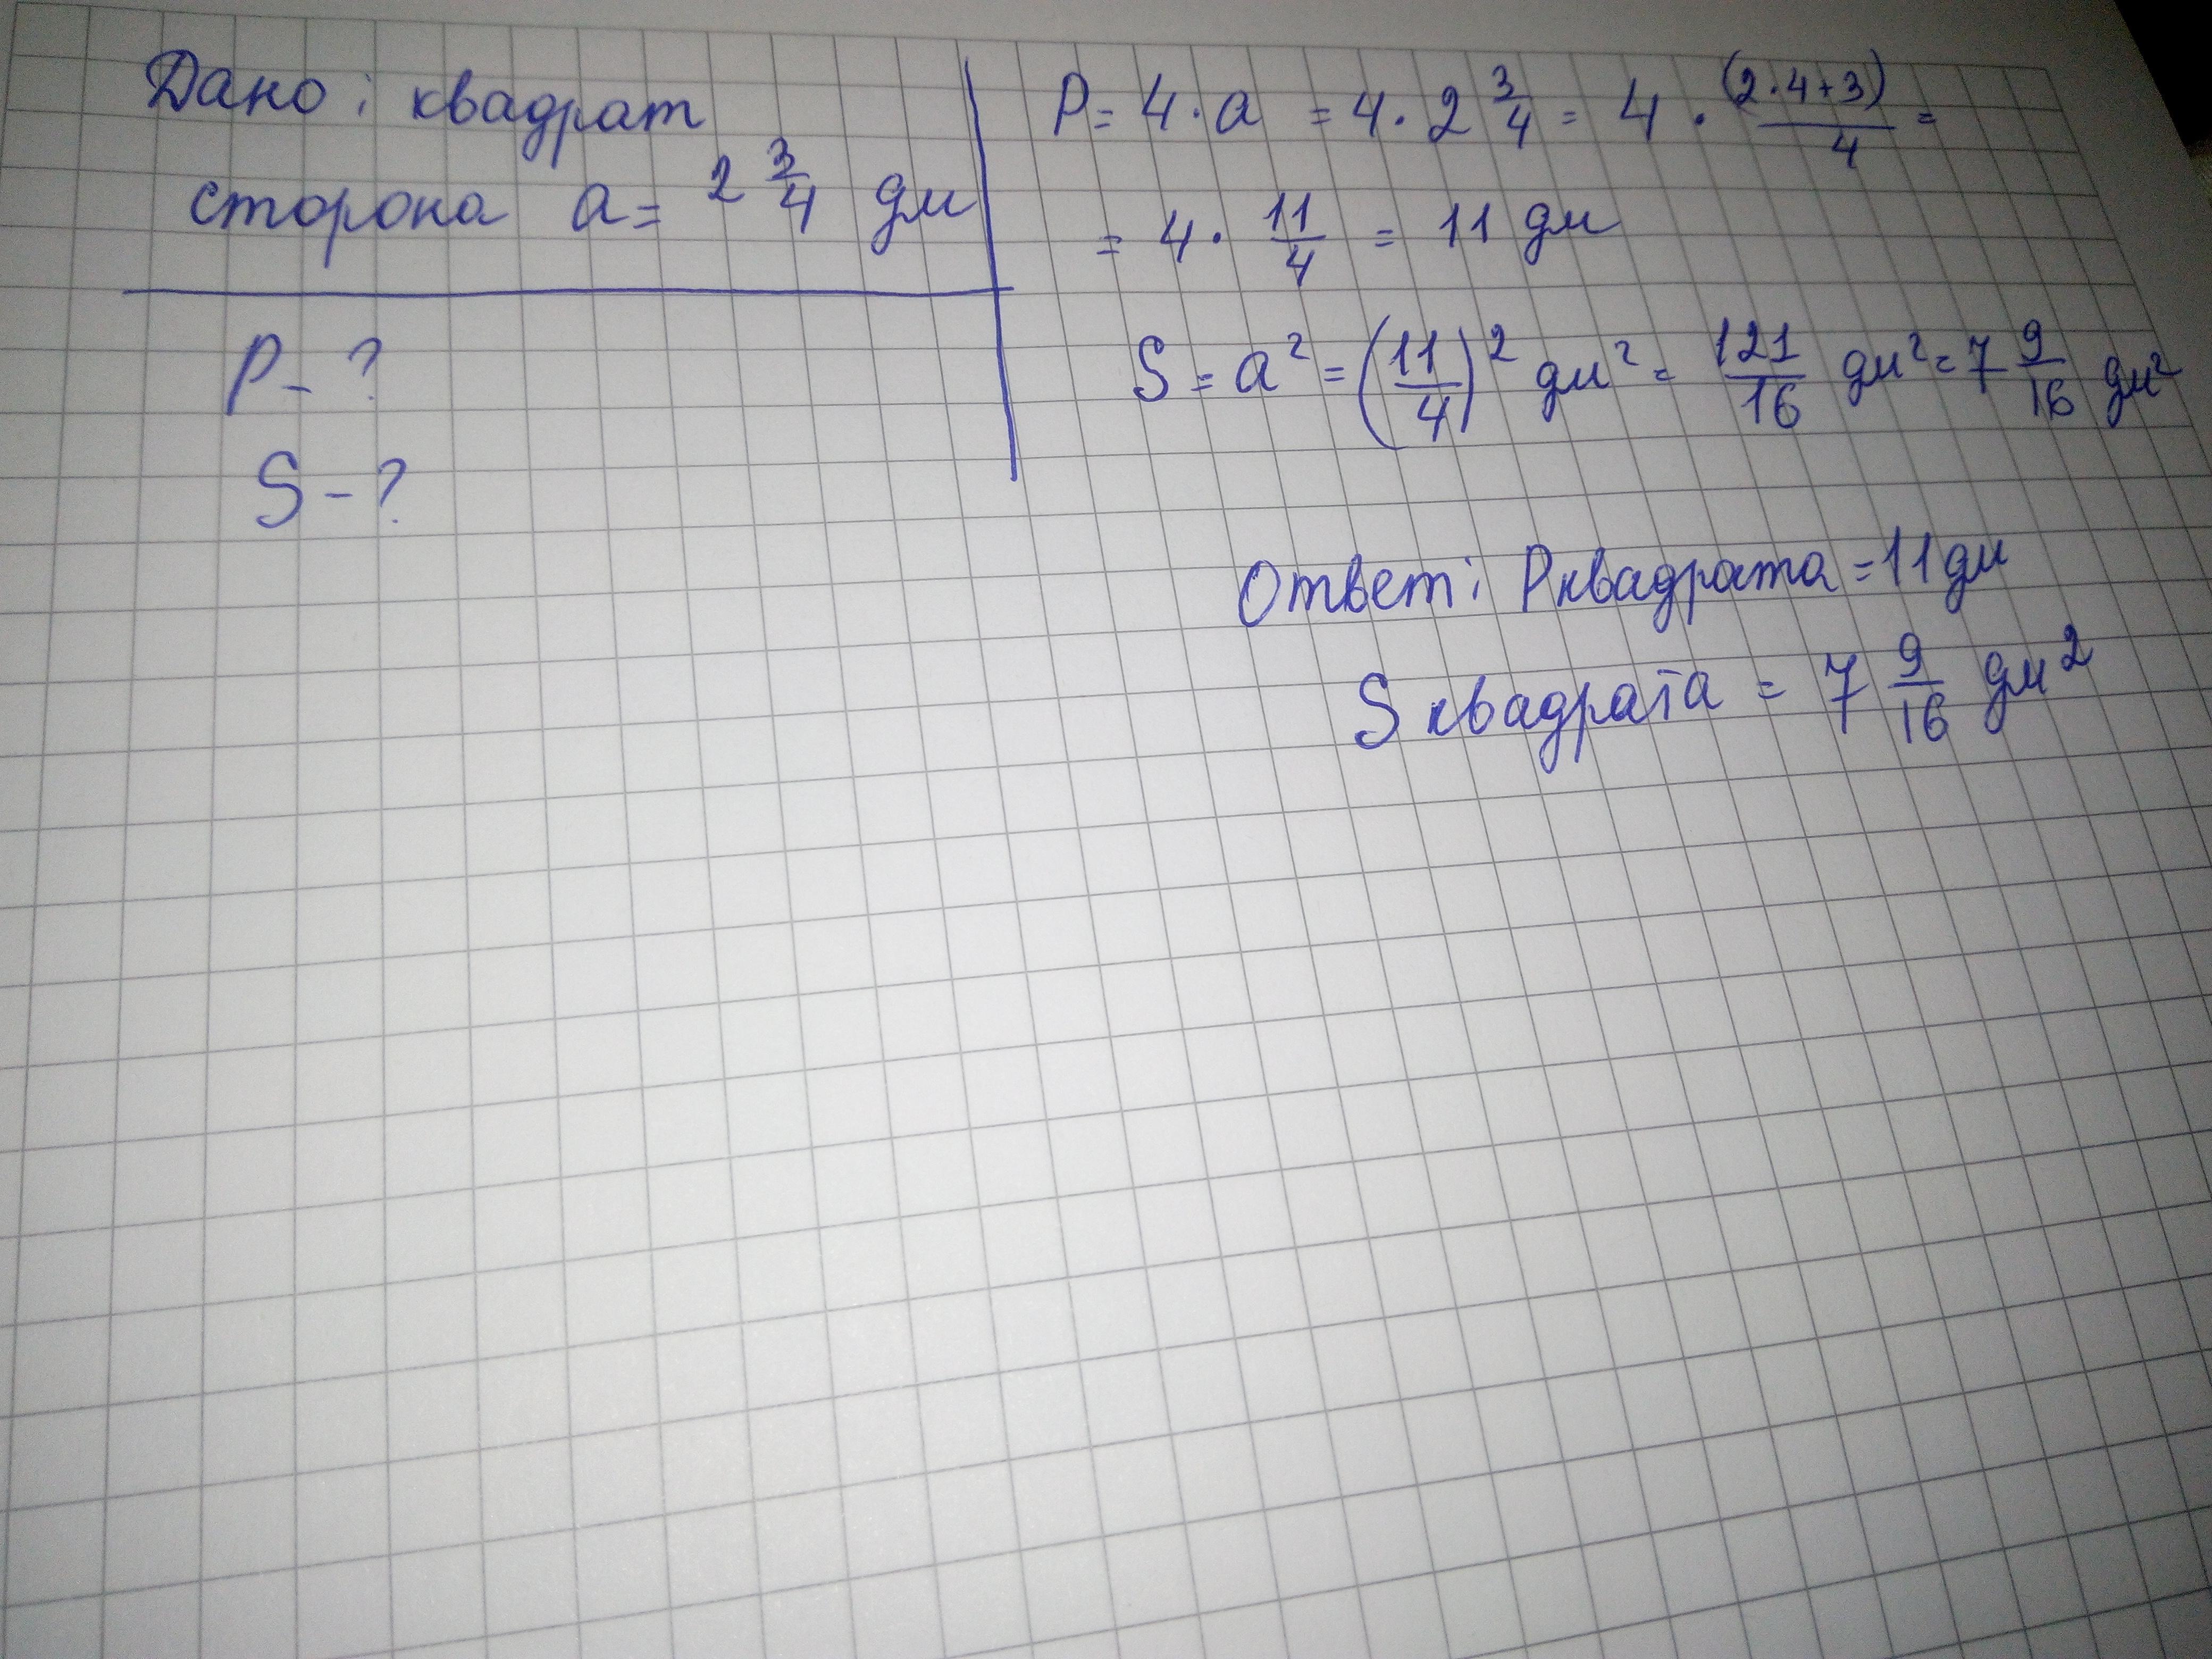 Дано: квадрат
сторона a = 2 3/4 дм
P - ?
S - ?
P = 4 · a = 4 · 2 3/4 = 4 · (2·4+3)/4 =
= 4 · 11/4 = 11 дм
S = a² = (11/4)² дм² = 121/16 дм² = 7 9/16 дм²
Ответ: P квадрата = 11 дм
S квадрата = 7 9/16 дм²